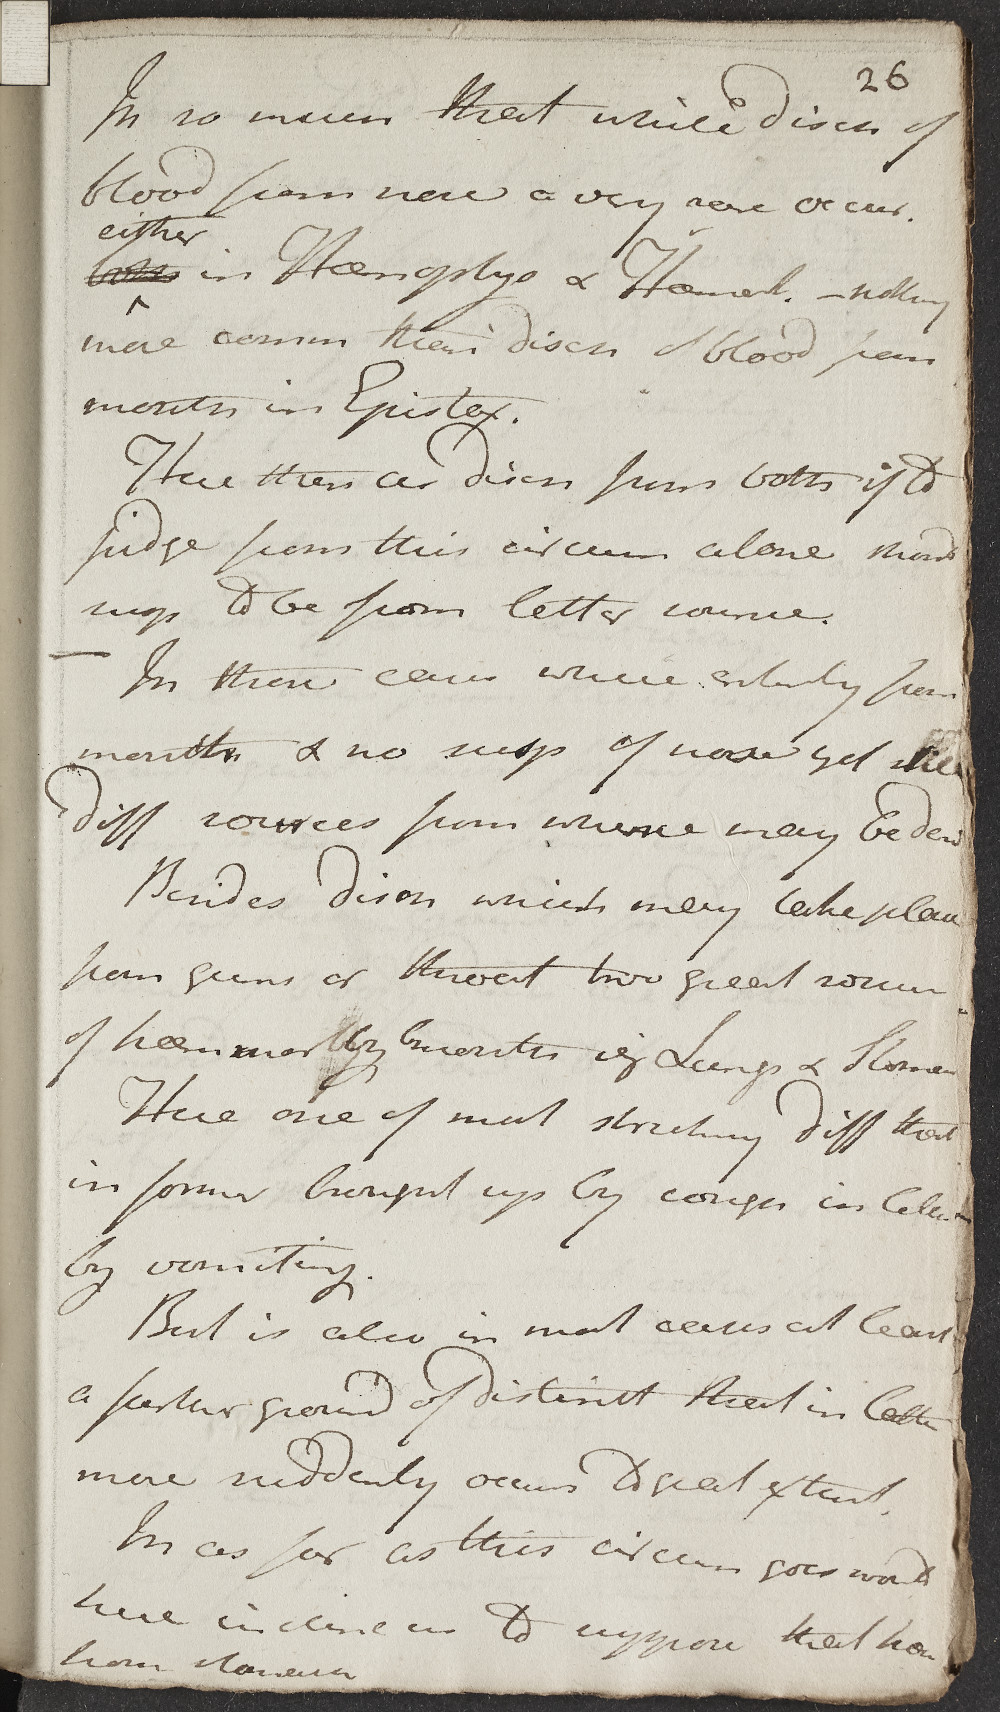 26
In so much that while disch of
blood from nose a very rare occur.
either
both in Hæmoptys & Hæmat. - nothing
more comm than disch of blood from
mouth in Epistax.
Here then as disch from both if to
judge from this circum alone should
susp to be from latter source.
- In those cases where entirely from
mouth & no susp of nose yet still
diff sources from whence may be deriv
Besides disch which may take place
from gums or throat two great sources
of hæmmor by mouth viz Lungs & Stomac
Here one of most striking diff that
in former brought up by cough in latter
by vomiting.
But is also in most cases at least
a farther ground of distinct that in latter
more suddenly occurs to great extent.
In as far as this circum goes would
here incline us to suppose that hæm
from stomach